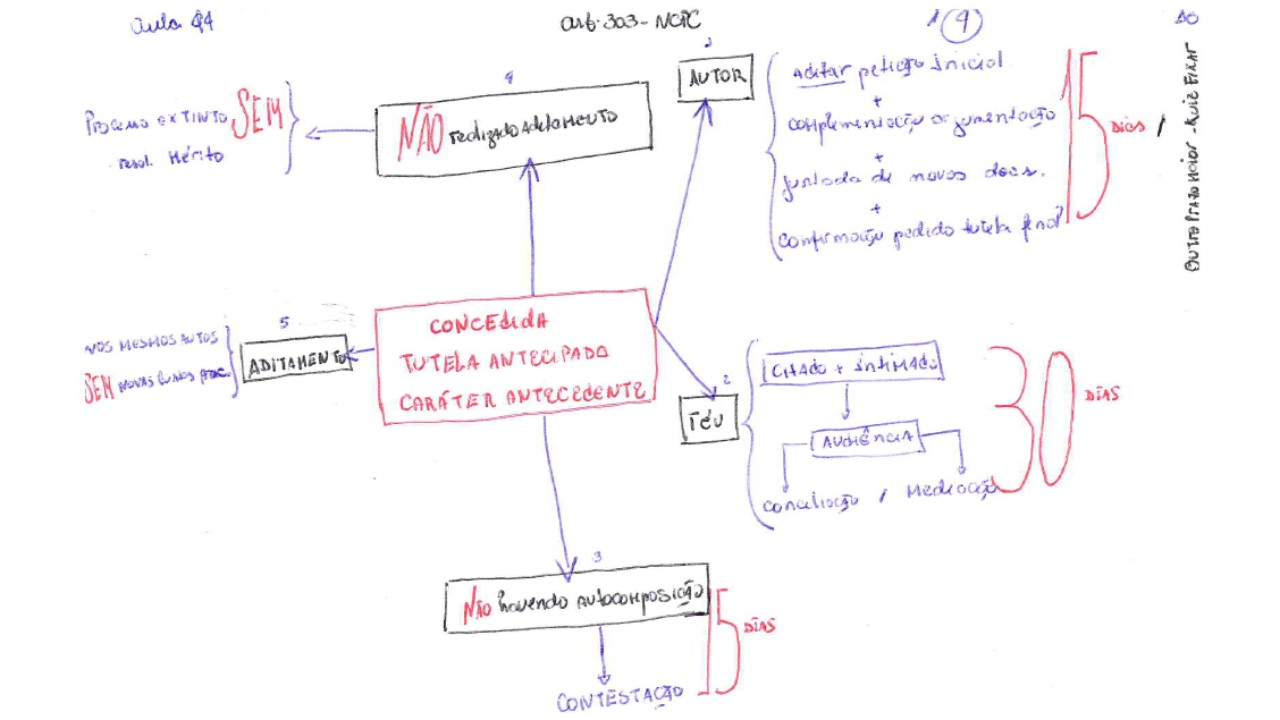 aula
art. 303 - NCPC
1
AUTOR
Aditar petição inicial
+
complementação argumentação
+
juntada de novos docs.
+
confirmação pedido tutela final
15 DIAS /
OUTRO PRAZO MAIOR - JUIZ FIXAR
4
NÃO realizado Aditamento
Processo EXTINTO SEM
resol. Mérito
CONCEdidA
TUTELA ANTECIPADA
CARÁTER ANTECEDENTE
5
ADITAMENTO
NOS MESMOS AUTOS
SEM NOVAS CUSTAS proc.
2
réu
CITADO + intimado
AUDIÊNCIA
Conciliação / Mediação
30 DIAS
3
NÃO havendo AUTOCOMPOSIÇÃO
CONTESTAÇÃO
15 DIAS